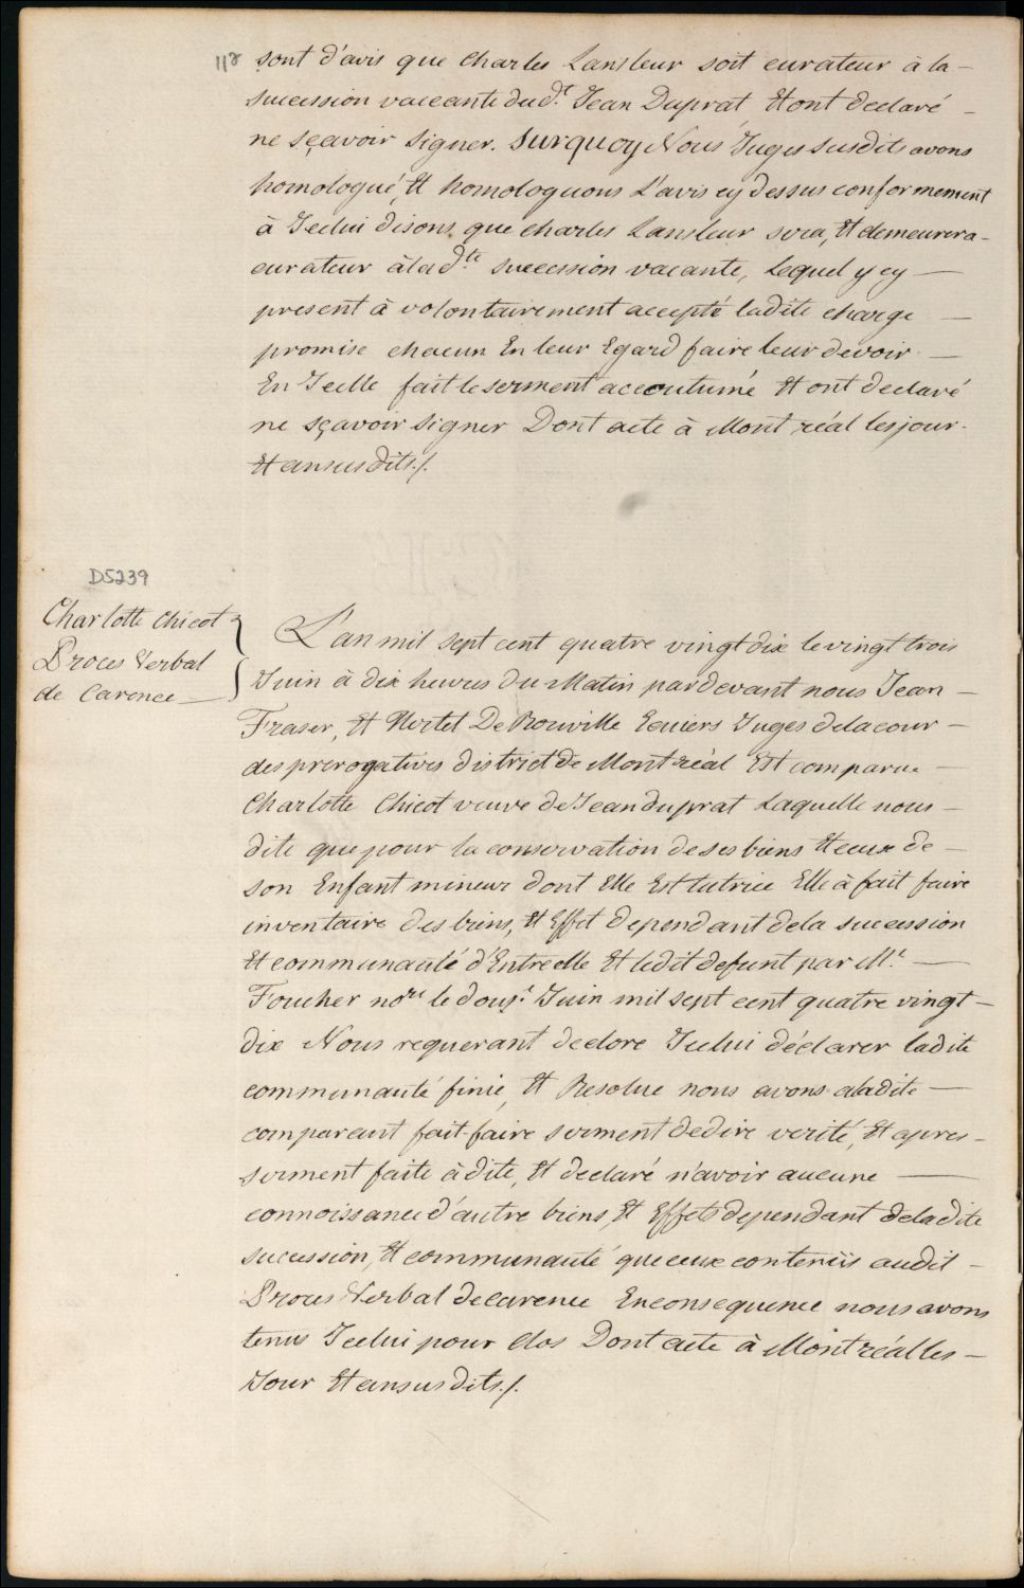 118 sont d'avis que Charles Lansleur soit curateur à la –
succession vaccante dud.t Jean Duprat Et ont declaré –
ne sçavoir signer. surquoy Nous Juges susdits avons
homologué, Et homologuons L'avis cy dessus conformement
à Jcelui disons que charles Lansleur sera, Et demeurera –
curateur à la d.te succession vacante, Lequel y cy —
present à volontairement accepté ladite charge —
promise chacun En leur Egard faire leur devoir —
En Jcelle fait le serment accoutumé Et ont declaré
ne sçavoir signer Dont acte à Montréal les jour –
Et an susdits./.
D5239
Charlotte Chicot
Proces Verbal
de Carence —
L'an mil sept cent quatre vingt dix le vingt trois
Juin à dix heures du Matin pardevant nous Jean –
Fraser, Et Hertel De Rouville Ecuiers Juges de la cour –
des prerogatives district de Montréal Est comparue –
Charlotte Chicot veuve de Jean duprat Laquelle nous –
dite que pour la conservation de ses biens Et ceux de –
son Enfant mineur dont Elle Est tutrice Elle à fait faire
inventaire des biens, Et Effet dependant de la sucession
Et communauté d'Entre elle Et ledit defunt par M.r —
Foucher no.re le douz.e Juin mil sept cent quatre vingt –
dix Nous requerant declore Jcelui déclarer ladite
communauté finie, Et Resolue nous avons aladite —
comparant fait faire serment dedire verité, Et apres –
serment faite à dite, Et declaré n'avoir aucune —
connoissance d'autre biens, Et Effets dependant deladite
sucession, Et communauté que ceux contenüs audit –
Proces Verbal decarence En consequence nous avons
tenu Jcelui pour clos Dont acte à Montréal les –
Jour Et an susdits./.